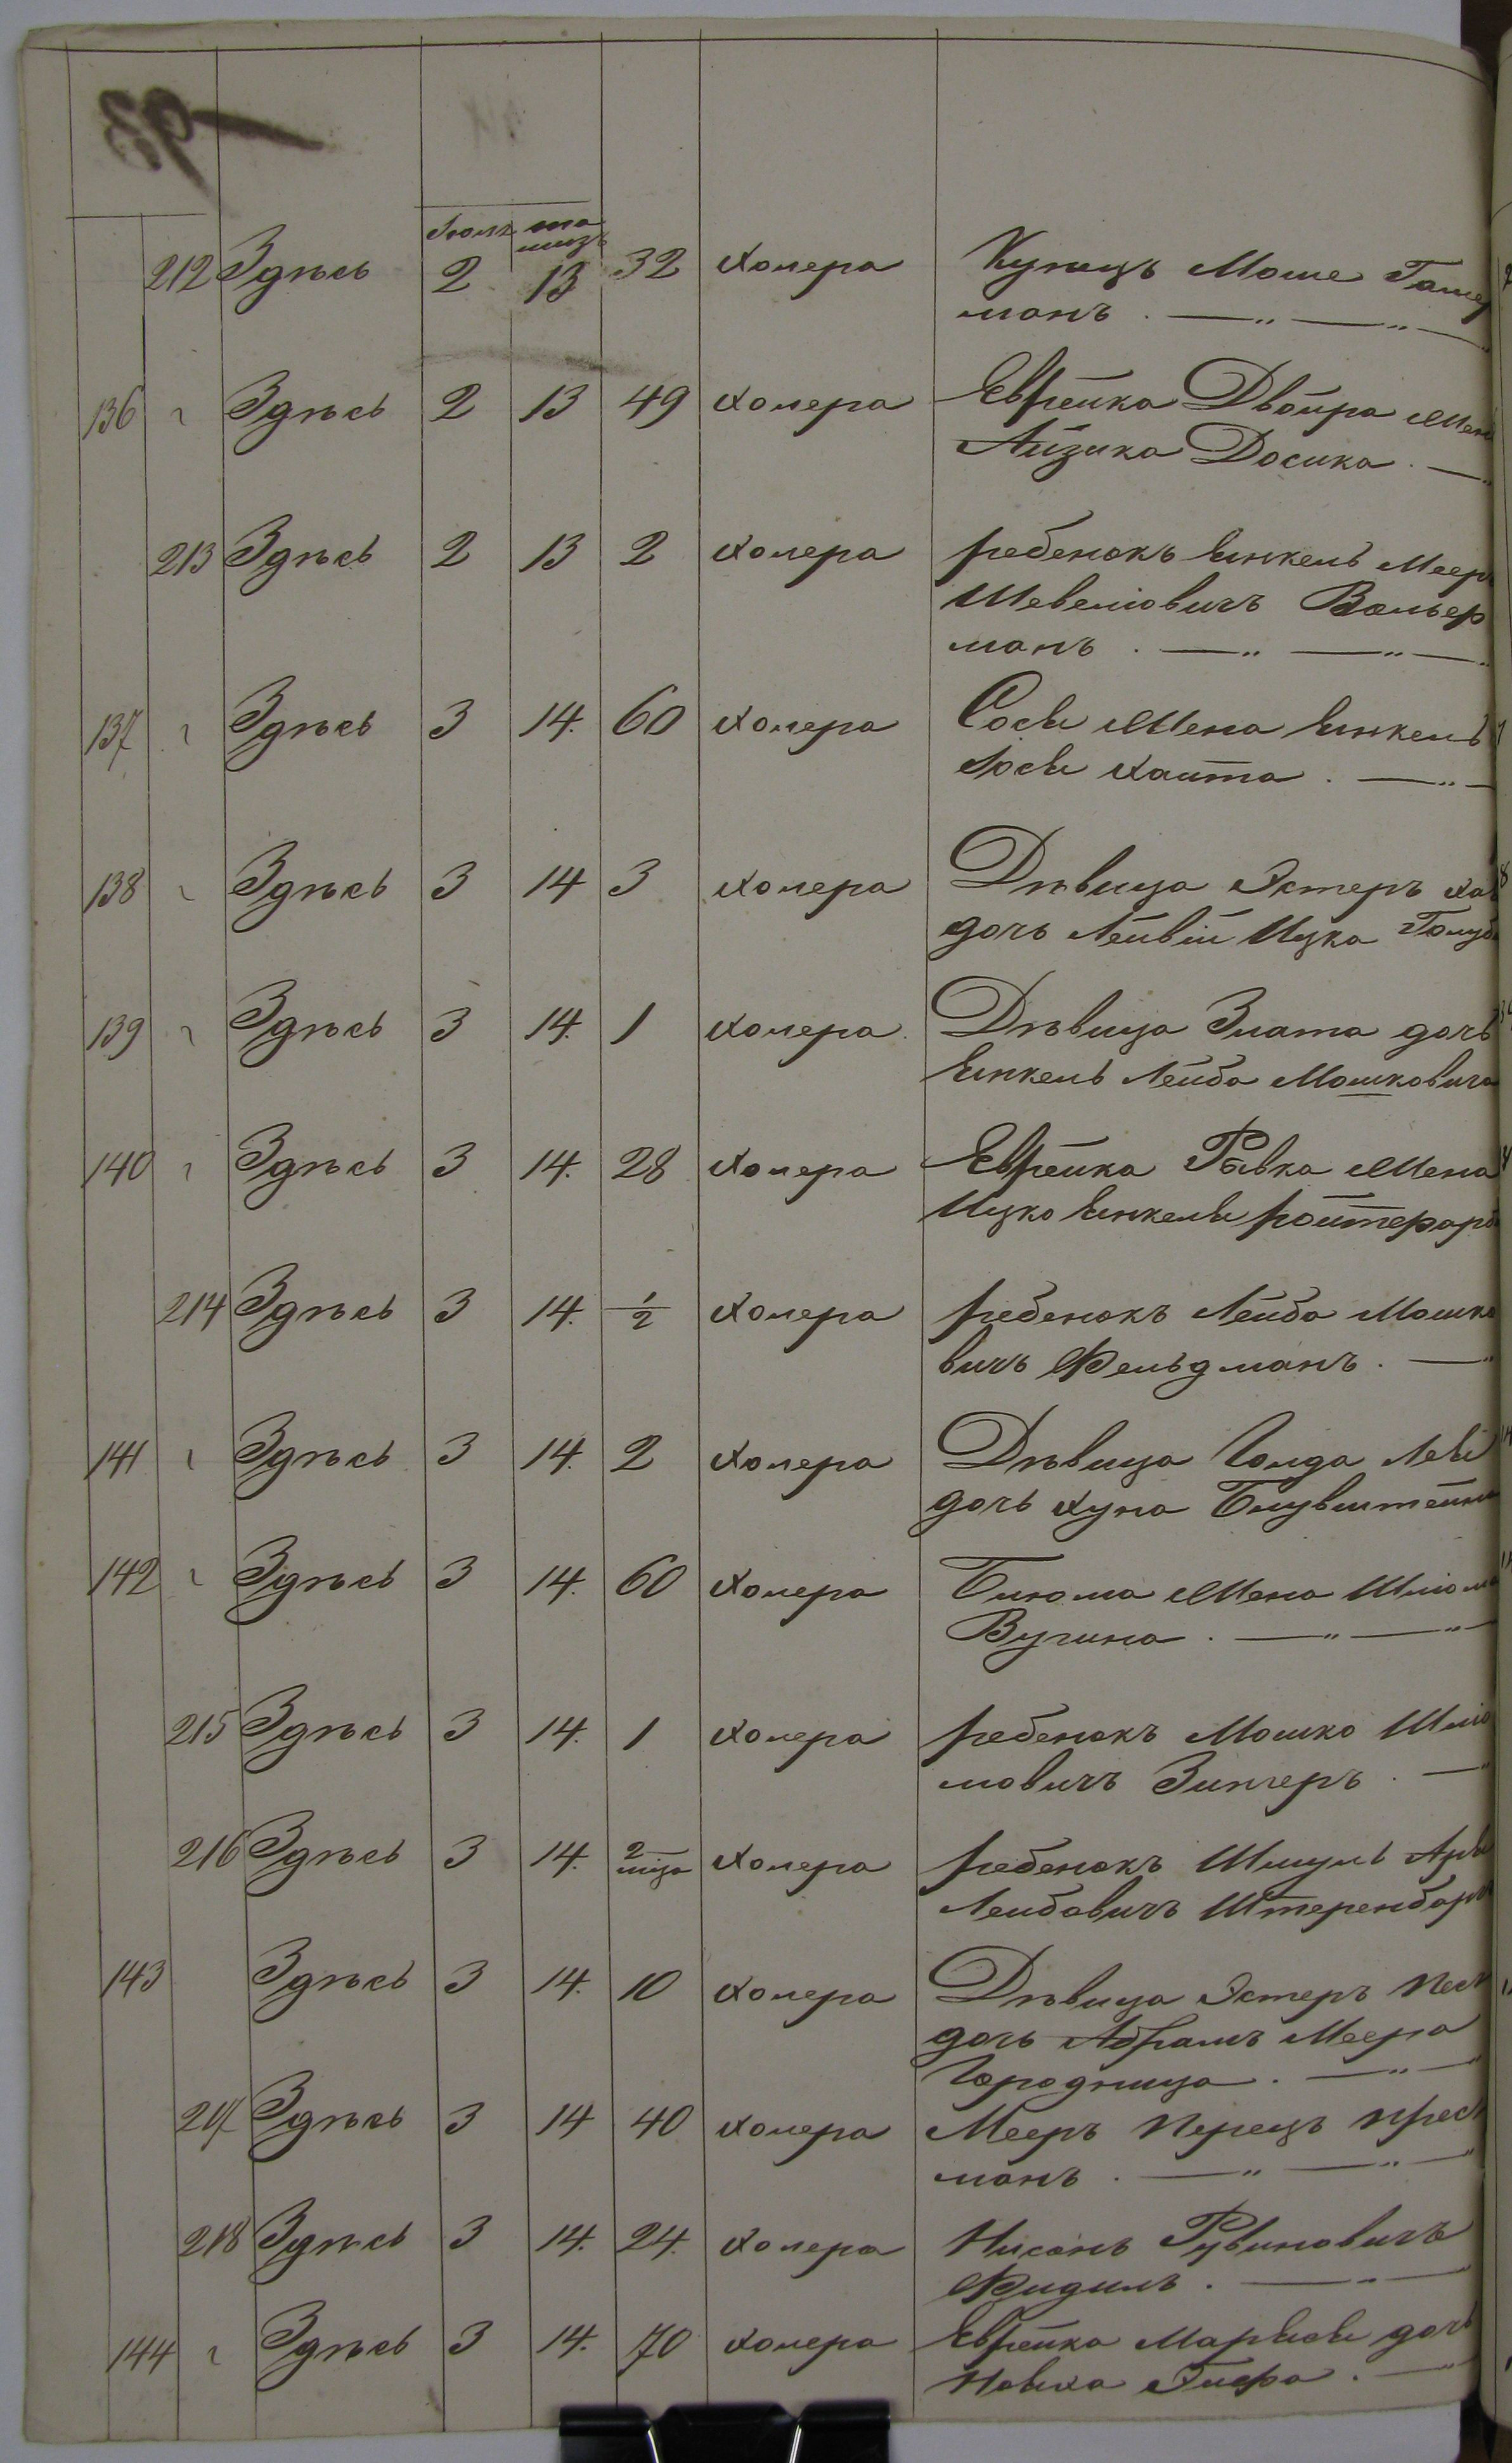 93
Іюль та
мизъ
212 Здѣсь 2 13 32 холера Купецъ Моше
манъ
136 Здѣсь 2 13 49 холера Еврейка Двойра жена
Айзика Досика
213 Здѣсь 2 13 2 холера ребенокъ Янкель Меер
Шевелiовичъ Вальер
манъ
137 Здѣсь 3 14. 60 холера Сося жена Янкель
Хаита
138 Здѣсь 3 14 3 холера Дѣвица Эстеръ Ха
дочь Лейвiй Ицка Голуб
139 Здѣсь 3 14. 1 холера Дѣвица Злата дочь
Янкель Лейба Мошковича
140 Здѣсь 3 14. 28 холера Еврейка Рывка жена
Ицко Янкеля
214 Здѣсь 3 14. 1/2 холера ребенокъ Лейба Мошко
вичъ Фельдманъ
141 Здѣсь 3 14. 2 холера Дѣвица Голда
дочь Хуна
142 Здѣсь 3 14. 60 холера Блюма жена Шліома
Вугина
215 Здѣсь 3 14. 1 холера ребенокъ Мошко Шліо
мовичъ Зингеръ
216 Здѣсь 3 14. 2 мца холера ребенокъ Шмуль
Лейбовичъ
143 Здѣсь 3 14. 10 холера Дѣвица Эстеръ
дочь Абрамъ Меера
Городница
217 Здѣсь 3 14 40 холера Мееръ Перецъ
манъ
218 Здѣсь 3 14. 24. холера Нисонъ Рувиновичъ
Фидиль
144 Здѣсь 3 14. 70 холера Еврейка дочь